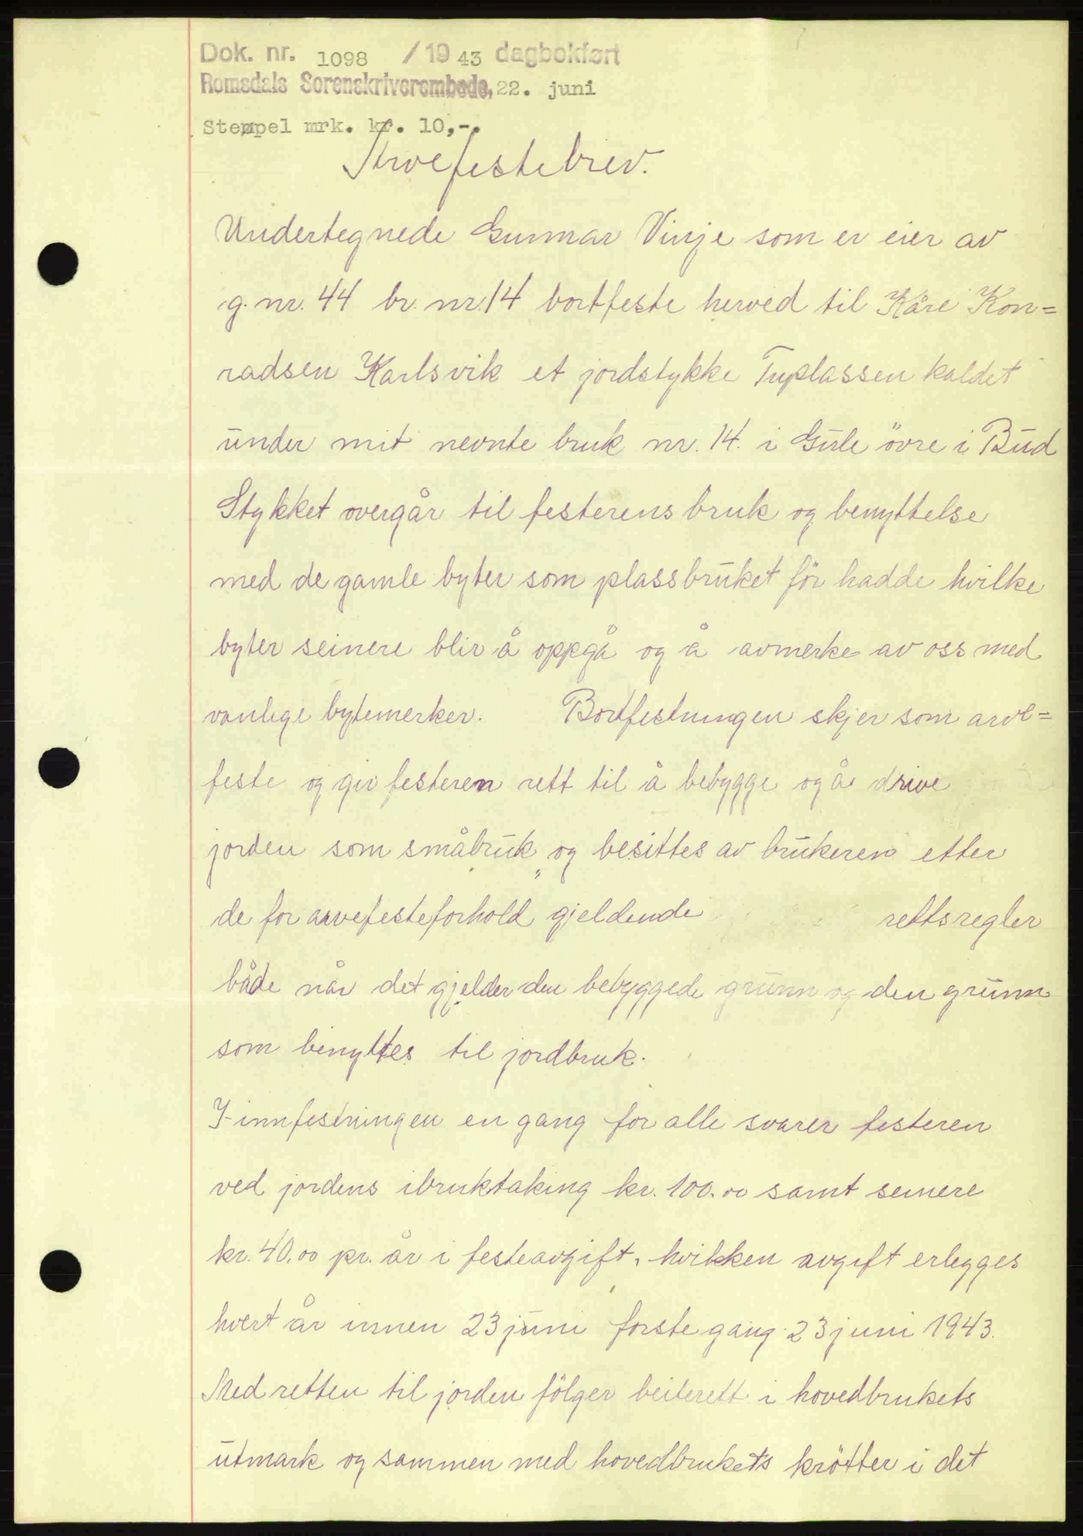 Dok. nr. 1098 / 19 43 dagbokført
Romsdals Sorenskriverembede, 22. juni
Stempel mrk. kr. 10,-.
Arvefestebrev.
Undertegnede Gunnar Vinje som er eier av
g. nr. 44 br. nr. 14 bortfeste herved til Kåre Kon=
radsen Karlsvik et jordstykke Typlassen kaldet
under mit nevnte bruk nr. 14. i Gule övre i Bud
Stykket overgår til festerens bruk og benyttelse
med de gamle byter som plassbruket för hadde hvilke
byter seinere blir å oppgå og å avmerke av oss med
vanlige bytemerker. Bortfestningen skjer som arve=
feste og giv festeren rett til å bebygge og å drive
jorden som småbruk og besittes av brukeren etter
de for arvefesteforhold gjeldende rettsregler
både når det gjelder den bebyggede grunn og den grunn
som benyttes til jordbruk.
I innfestningen en gang for alle svarer festeren
ved jordens ibruktaking kr. 100.00 samt seinere
kr. 40.00 pr. år i festeavgift, hvikken avgift erlegges
hvert år innen 23 juni forste gang 23 juni 1943.
Med retten til jorden fölger beiterett i hovedbrukets
utmark og sammen med hovedbrukets krötter i det